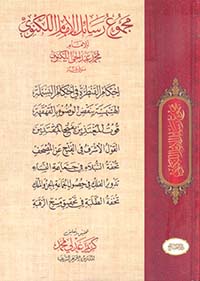 مجموع رسائل الإمام اللكنوي
للإمام
محمد عبد الحي اللكنوي
إحكام القنطرة في أحكام البسملة
الهسهسة بنقض الوضوء بالقهقهة
قوت المغتذين بفتح المقتدين
القول الأشرف في الفتح عن المصحف
تحفة النبلاء في جماعة النساء
تدوير الفلك في حصول الجماعة بالجن والملك
تحفة الطلبة في تحقيق مسح الرقبة
مجموع رسائل الإمام اللكنوي